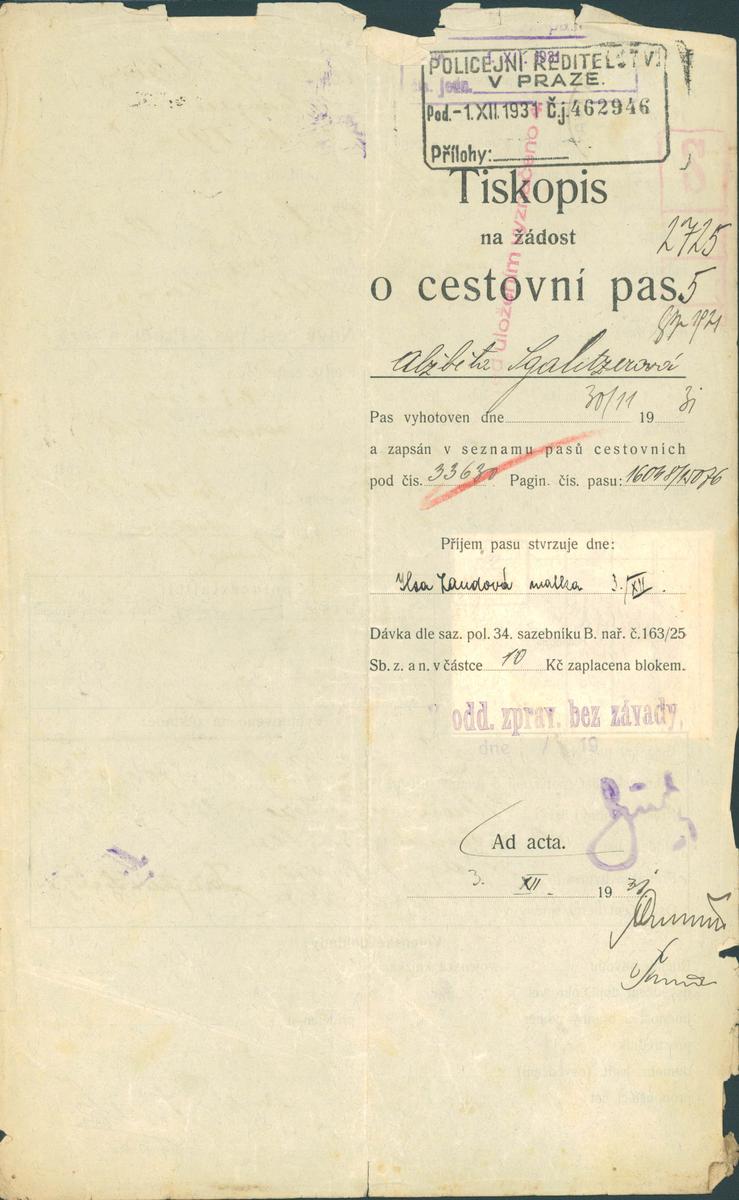 POLICEJNÍ ŘEDITELSTVÍ
V PRAZE.
Pod. -1.XII.1931 Č.j. 462946
Přílohy:
Tiskopis
na žádost
2725
o cestovní pas
5
Alžběta Sgalitzerová
Pas vyhotoven dne 30/11 1931
a zapsán v seznamu pasů cestovních
pod čís. 33630 Pagin. čís. pasu: 16048/15076
Příjem pasu stvrzuje dne:
Ilsa Zandová matka 3./XII.
Dávka dle saz. pol. 34. sazebníku B. nař. č. 163/25
Sb. z. a n. v částce 10 Kč zaplacena blokem.
odd. zprav. bez závady.
dne / 19
Ad acta.
3. XII. 1931